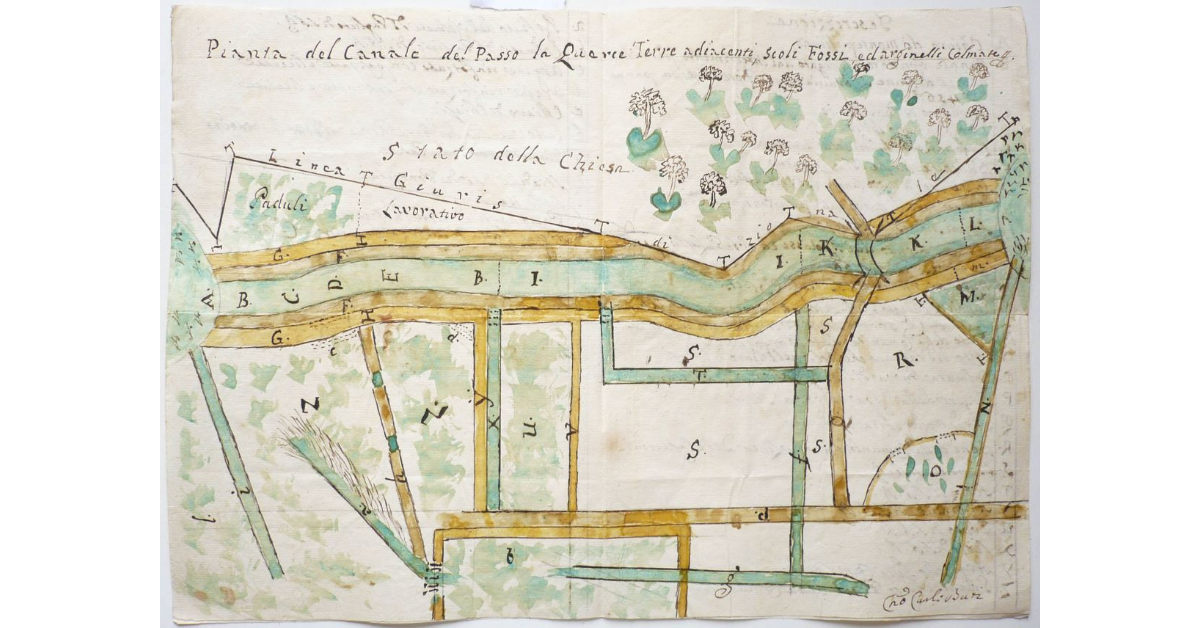 Pianta del Canale del Passo la Querce Terre adiacenti Scoli Fossi ed arginelli Colmate
Stato della Chiesa
Linea Giuris di zio na le
T T T T T T T T
Paduli
Lavorativo
G. F H
A. B. C. D. E B. I. I. K. K. L.
G. F. H
m. M.
H
c a
S S. T. R.
Z Z. y X U. V S. f S. Q N. O
i h
l
d
b
g
Carli